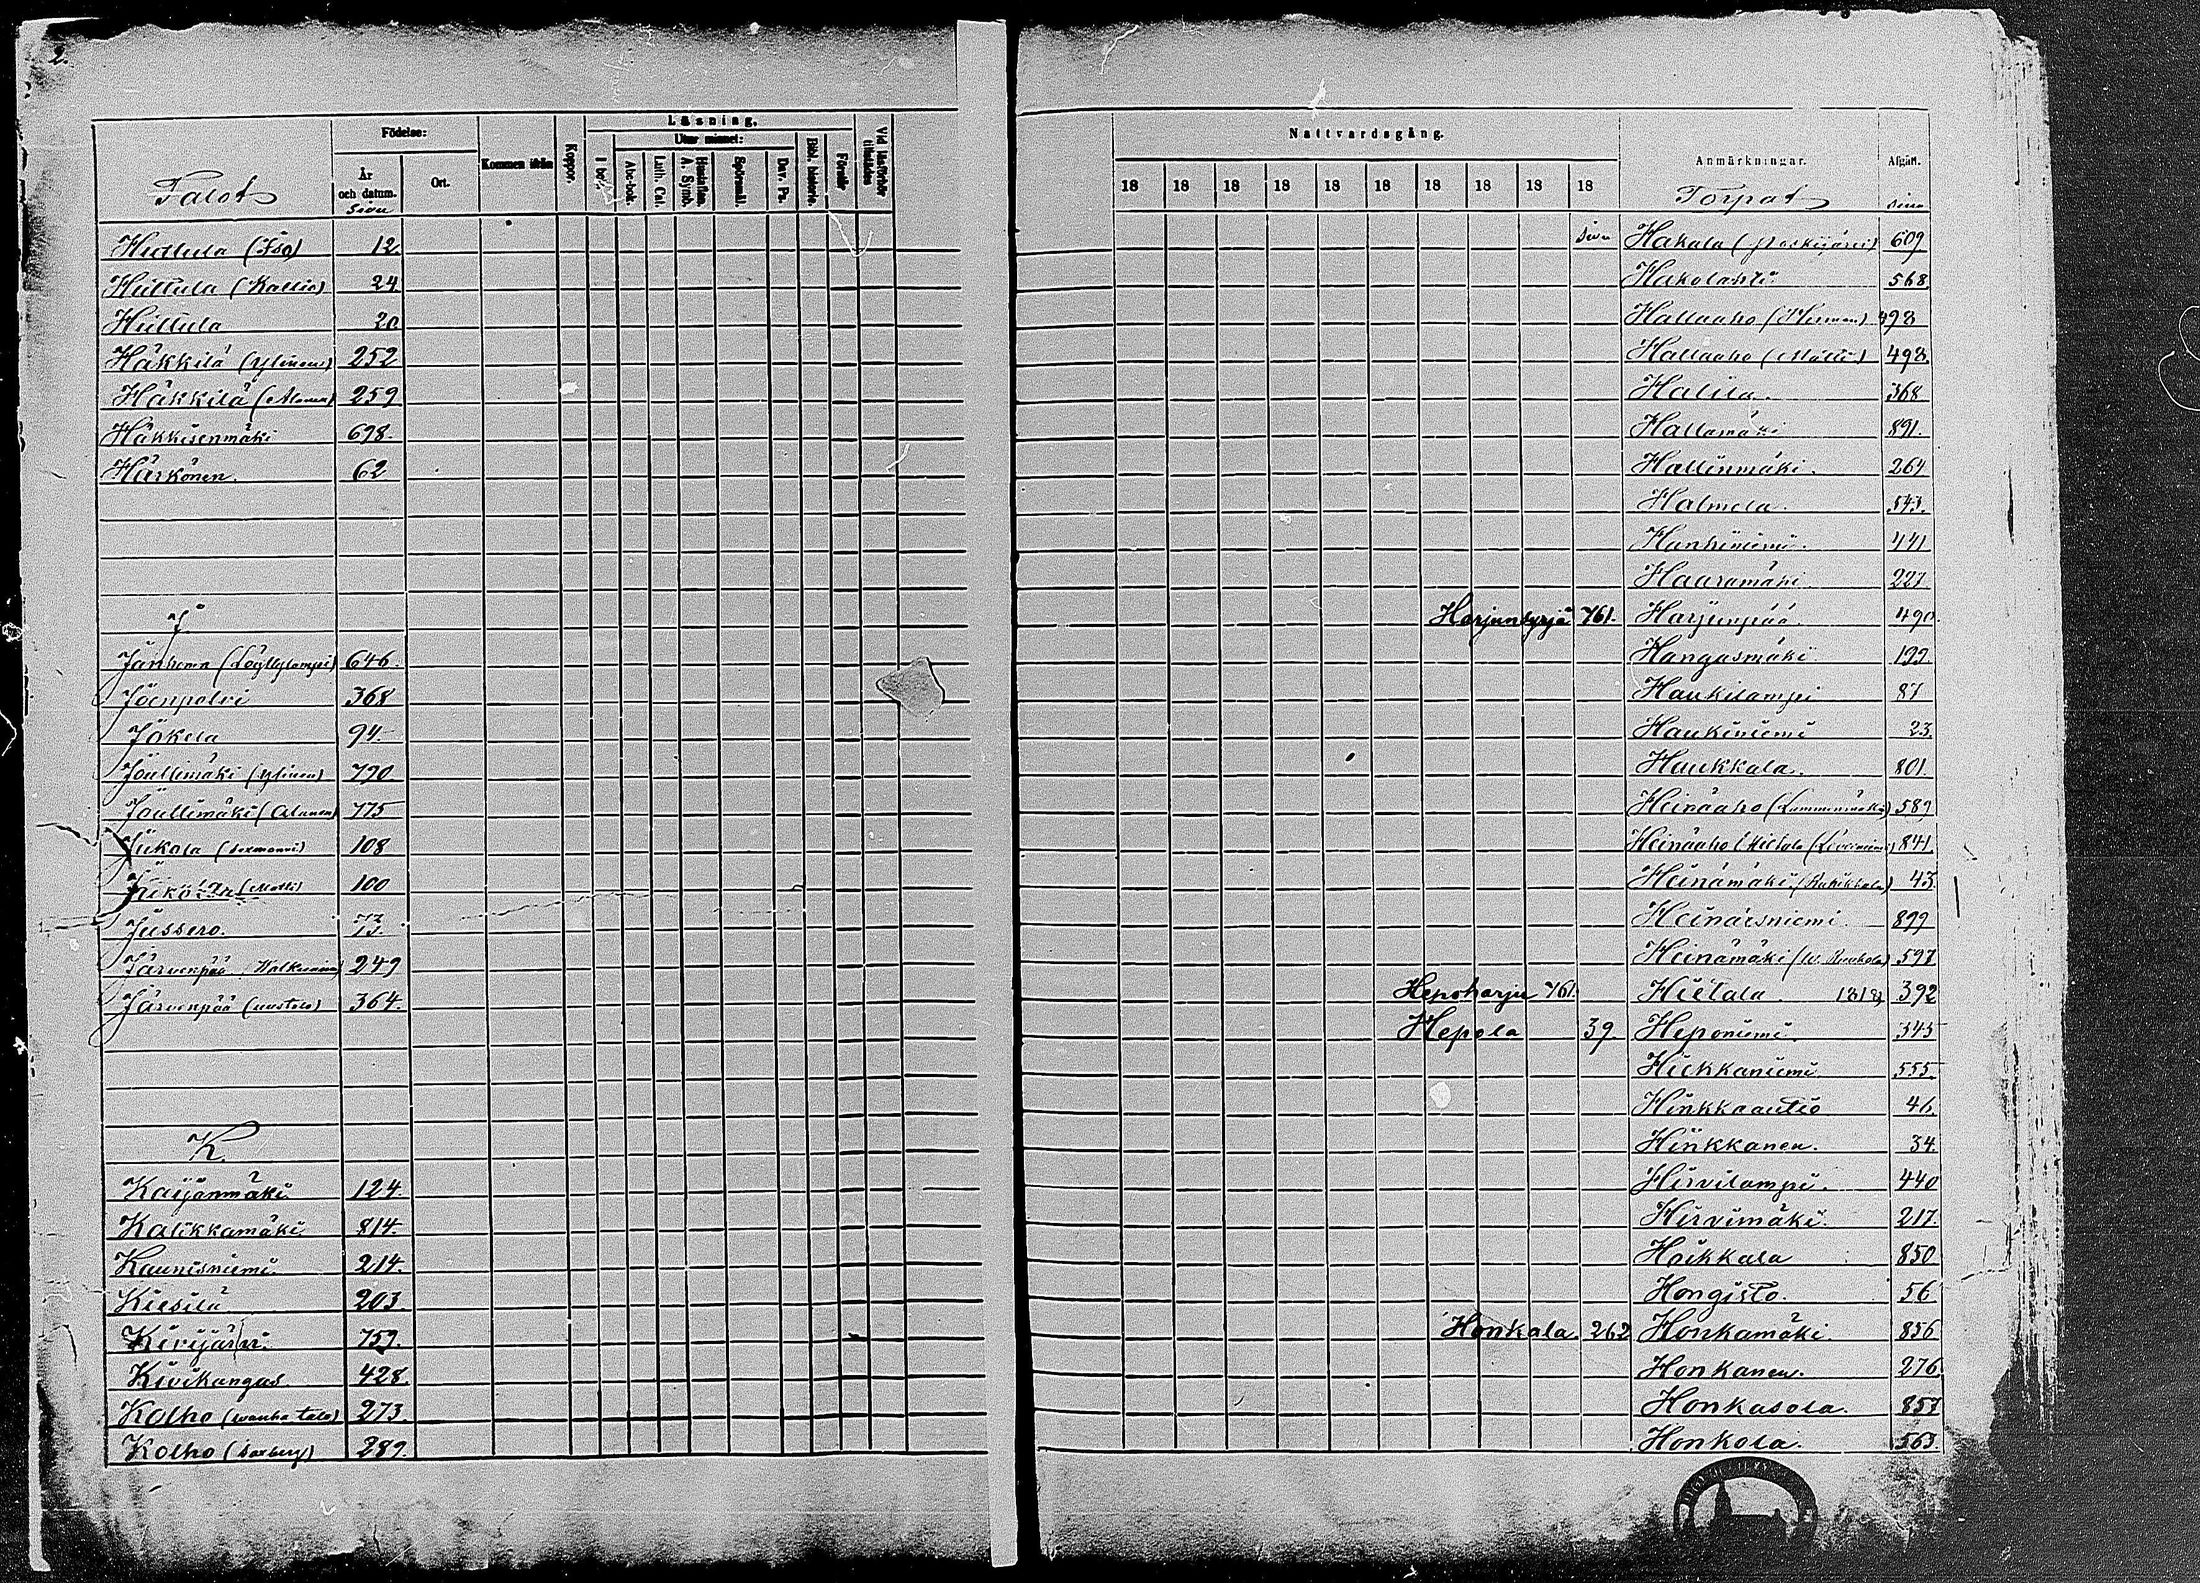 2.
Födelse:
Läsning.
Utur minnet:
Talot
År och datum.
Sivu
Ort.
Kommen ifrån
Koppor.
I bok.
Abc-bok
Luth. Cat.
Hustaflan A. Symb.
Spörsmål
Dav. Ps.
Bibl. historie
Förstår
Vid läsförhör tillstädes
Huttula (Iso) 12
Huttula (Kallio) 24
Huttula 20
Häkkilä (Ylinen) 252
Häkkilä (Alanen) 259
Häkkisenmäki 698.
Härkönen. 62
J.
Jänhema (Löyllylampi) 646.
Joenpolvi 368
Jokela 94
Joullimäki (Ylinen) 790
Joullimäki (Alanen) 775
Jukola 108
(Matti) 100
Jussero. 73.
Järvenpää 249
Järvenpää (uustalo) 364.
K.
Kaijanmäki 124.
Kalikkamäki 814.
Kaunisniemi. 214.
Kiesilä 203.
Kivijärvi. 759.
Kivikangas. 428.
Kolho (wanha talo) 273
Kolho 289.
Nattvardsgång.
Anmärkningar.
Afgått.
18 18 18 18 18 18 18 18 18 18
Torpat
sivu
sivu Hakala 609
Hakolahti 568
Hallaaho (Herman) 498
Hallaaho (Matti) 498.
Halila. 368
Hallamäki 891.
Hallinmäki. 264
Halmela. 543.
Hanhiniemi. 441
Hauramäki 227
Harjunsyrjä 761. Harjunpää. 490.
Hangasmäki 199.
Haukilampi 87
Haukiniemi 23.
Haukkala. 801.
Heinäaho 589
Heinäaho 841.
Heinämäki 43.
Heinäisniemi. 899
Heinämäki 597
Hepoharju 761. Hietala 392
Hepola 39. Heponiemi. 345
Hiekkaniemi 555.
Hinkkaautio 46.
Hinkkanen. 34.
Hirvilampi. 440
Hirvimäki. 217.
Hoikkala 850
Hongisto. 56
Honkala. 262 Honkamäki. 856
Honkanen. 276
Honkasola. 857
Honkola. 563.